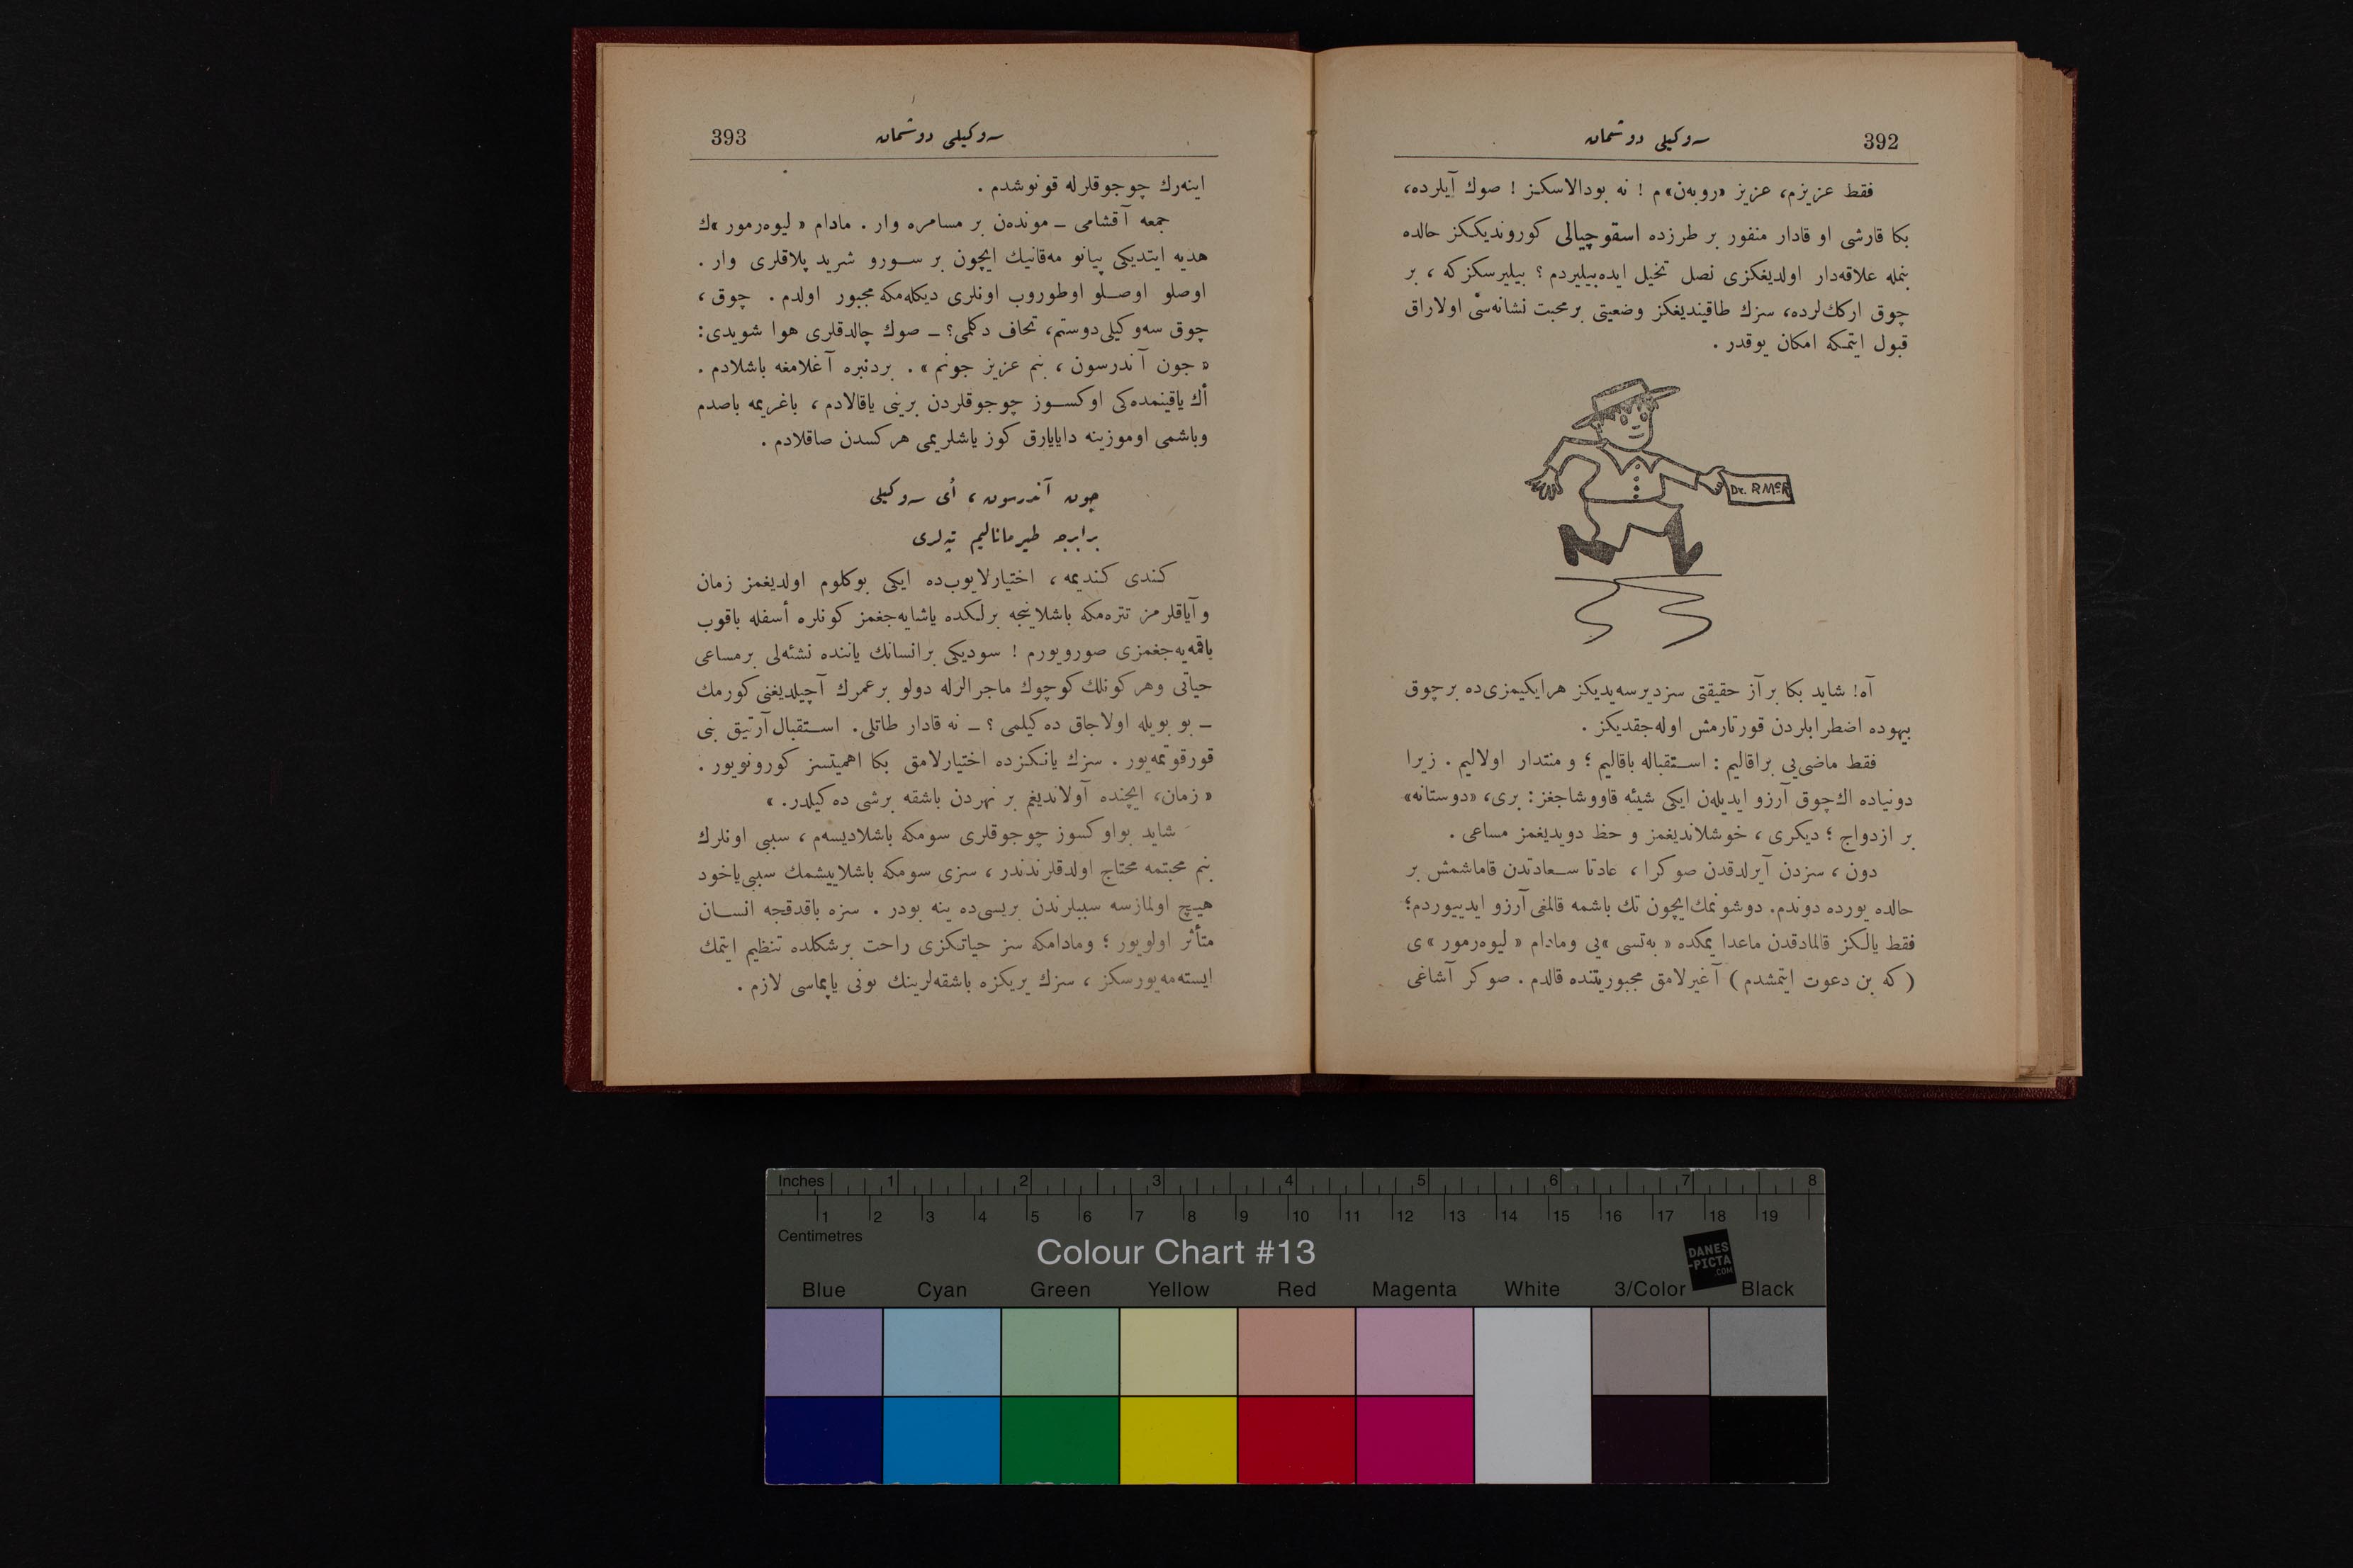 392
سه‌وکیلی دوشمان
فقط عزیزم، عزیز «روبه‌ن»م ! نه بودالاسکز ! صوك آیلرده،
بکا قارشی او قادار منفور بر طرزده اسقوچیالی کوروندیککز حالده
بنمله علاقه‌دار اولدیغکزی نصل تخیل ایده‌بیلیردم ؟ بیلیرسکز که ، بر
چوق ارکك‌لرده، سزك طاقیندیغکز وضعیتی بر محبت نشانه‌سی اولاراق
قبول ایتمکه امکان یوقدر .
Dr. R McR
آه! شاید بکا بر آز حقیقتی سزدیرسه‌یدیکز هر ایکیمزی‌ده بر چوق
بیهوده اضطرابلردن قورتارمش اوله‌جقدیکز .
فقط ماضی‌یی براقالیم : استقباله باقالیم ؛ و منتدار اولالیم . زیرا
دونیاده اك‌چوق آرزو ایدیله‌ن ایکی شیئه قاووشاجغز : بری، «دوستانه»
بر ازدواج ؛ دیکری ، خوشلاندیغمز و حظ دویدیغمز مساعی .
دون ، سزدن آیرلدقدن صوکرا ، عادتا سعادتدن قاماشمش بر
حالده یورده دوندم. دوشونمك‌ایچون تك باشمه قالمغی آرزو ایدییوردم؛
فقط یالکز قالمادقدن ماعدا یمکده « به‌تسی »یی ومادام « لیوه‌رمور »ی
( که بن دعوت ایتمشدم ) آغیرلامق مجبوریتنده قالدم . صوکر آشاغی
393
سه‌وکیلی دوشمان
اینه‌رك چوجوقلرله قونوشدم .
جمعه آقشامی ـ مونده‌ن بر مسامره وار . مادام « لیوه‌رمور »ك
هدیه ایتدیکی پیانو مه‌قانیك ایچون بر سورو شرید پلاقلری وار .
اوصلو اوصلو اوطوروب اونلری دیکله‌مکه مجبور اولدم . چوق ،
چوق سه‌وکیلی دوستم، تحاف دکلمی؟ ـ صوك چالدقلری هوا شویدی:
« جون آندرسون ، بنم عزیز جونم » . بردنبره آغلامغه باشلادم .
أك یاقینمده‌کی اوکسوز چوجوقلردن برینی یاقالادم ، باغریمه باصدم
وباشمی اوموزینه دایایارق کوز یاشلریمی هر کسدن صاقلادم .
جون آندرسون ، أی سه‌وکیلی
برابرجه طیرمانالیم تپه‌لری
کندی کندیمه ، اختیارلایوب‌ده ایکی بوکلوم اولدیغمز زمان
و آیاقلرمز تتره‌مکه باشلاینجه برلکده یاشایه‌جغمز کونلره أسفله باقوب
باقمه‌یه‌جغمزی صورویورم ! سودیکی بر انسانك یاننده نشئه‌لی بر مساعی
حیاتی وهر کونلك کوچوك ماجرالرله دولو بر عمرك آچیلدیغنی کورمك
ـ بو بویله اولاجاق ده‌کیلمی ؟ ـ نه قادار طاتلی. استقبال آرتیق بنی
قورقوتمه‌یور . سزك یانکزده اختیارلامق بکا اهمیتسز کورونویور .
« زمان، ایچنده آولاندیغم بر نهردن باشقه برشی ده‌کیلدر. »
شاید بو اوکسوز چوجوقلری سومکه باشلادیسه‌م ، سببی اونلرك
بنم محبتمه محتاج اولدقلرندندر ، سزی سومکه باشلاییشمك سببی یاخود
هیچ اولمازسه سببلرندن بریسی‌ده ینه بودر . سزه باقدقجه انسان
متأثر اولویور ؛ ومادامکه سز حیاتکزی راحت بر شکلده تنظیم ایتمك
ایسته‌مه‌یورسکز ، سزك یریکزه باشقه‌لرینك بونی یاپماسی لازم .
Inches 1 2 3 4 5 6 7 8
1 2 3 4 5 6 7 8 9 10 11 12 13 14 15 16 17 18 19
Centimetres
Colour Chart #13
DANES
-PICTA
.COM
Blue Cyan Green Yellow Red Magenta White 3/Color Black